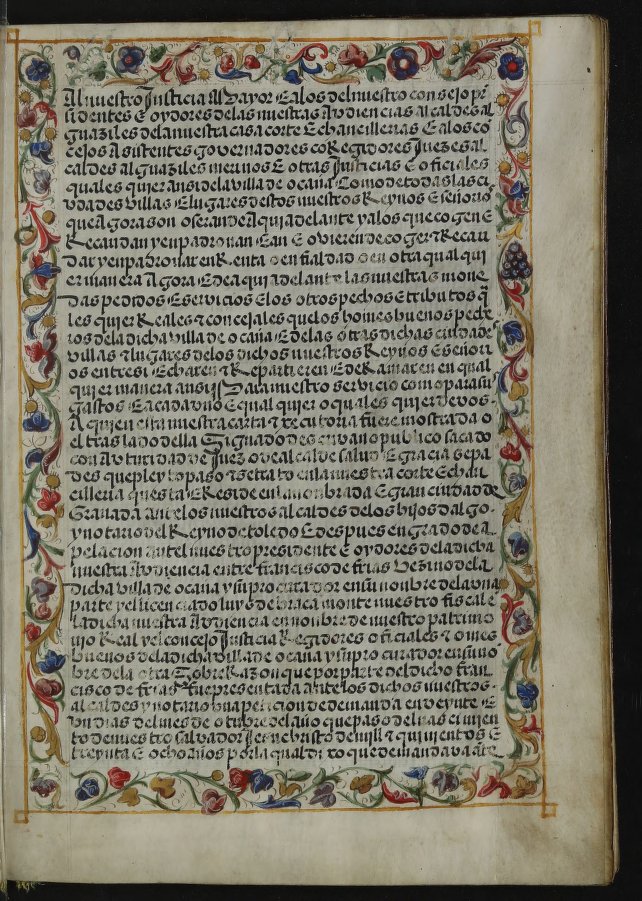 Al nuestro Justicia Mayor E alos del nuestro consejo pr
sidentes E oydores delas nuestras Avdiencias alcaldes al
guaziles dela nuestra casa corte E chancillerias E alos co
cejos Asistentes governadores coRegidores Juezes al
caldes alguaziles merinos E otras Justicias E oficiales
quales quier ansi dela villa de ocaña Como de todas las ci
vdades villas E lugares destos nuestros Reynos E señorios
que Agora son o seran de Aqui adelante y alos que cogen E
Recaudan y enpadronan Ean E ovieren de coger E Recau
dar y enpadronar en Renta o en fialdad o en otra qual qui
er manera Agora E de aqui adelante las nuestras mone
das pedidos E servicios E los otros pechos E tributos q̃
les quier Reales E concejales que los homes buenos peche
ros dela dicha villa de ocaña E delas otras dichas ciudades
villas E lugares delos dichos nuestros Reynos E señori
os entre si Echaren E Repartieren E deRamaren en qual
quier manera ansy Para nuestro servicio como para sus
gastos E a cada vno E qual quier o quales quier de vos
A quien esta nuestra carta executoria fuere mostrada o
el traslado della Signado de escrivano publico sacado
con Avturidad de Juez o de alcalde salud E gracia sepa
des que pleyto paso E se trato en la nuestra corte E chan
cilleria que esta E Reside en la nonbrada E gran ciudad de
Granada ante los nuestros alcaldes delos hijos dalgo
y notario del Reyno de toledo E despues en grado de a
pelacion ante el nuestro presidente E oydores dela dicha
nuestra Avdiencia entre francisco de frias Vezino dela
dicha villa de ocaña y su procurador en su nonbre dela vna
parte y el licenciado luys de bracamonte nuestro fiscal e
la dicha nuestra Avdiencia en nonbre de nuestro patrimo
nio Real y el concejo Justicia Regidores oficiales E omes
buenos dela dicha villa de ocaña y su procurador en su no
bre dela otra Sobre Razon que por parte del dicho fran
cisco de frias fue presentada ante los dichos nuestros
alcaldes y notario vna peticion de demanda en veynte E
vn dias del mes de otubre del año que paso del nascimien
to de nuestro salvador Jesucristo de mill E quinientos E
treynta E ocho años por la qual dixo que demandava ante